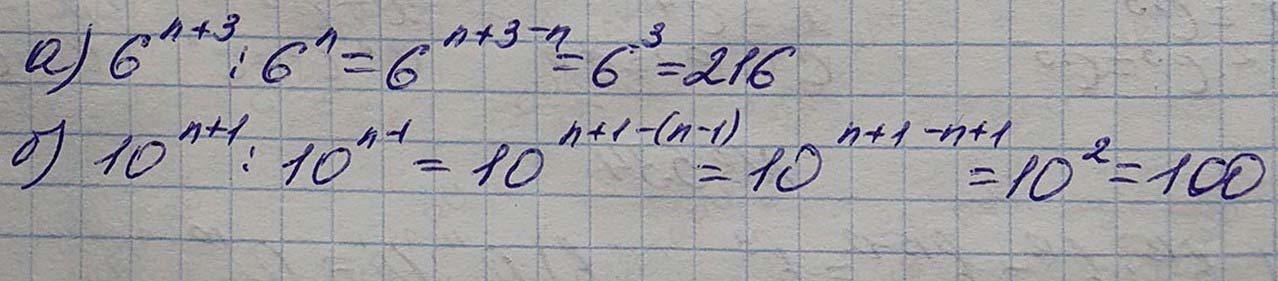 а) 6^{n+3} : 6^{n} = 6^{n+3-n} = 6^{3} = 216
б) 10^{n+1} : 10^{n-1} = 10^{n+1-(n-1)} = 10^{n+1-n+1} = 10^{2} = 100